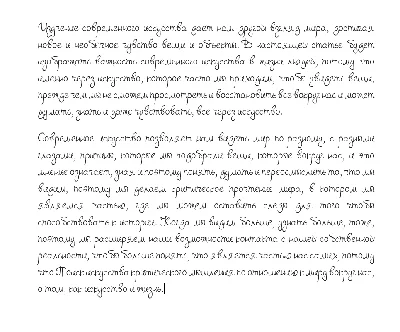 Изучение современного искусства дает нам другой взгляд мира, зрителям
новое и необычное чувство вещи и объекты. В настоящей статье будет
изображать важность современного искусства в жизни людей, потому что
именно через искусство, которое часто мы по глазам, чтобы увидеть вещи,
прежде чем мы не сможем просмотреть и восстановить все вокруг нас и может
думать, знать и даже чувствовать, все через искусство.
Современное искусство позволяет нам видеть мир по разному, с разными
глазами, причина, которые мы подобрали вещи, которые вокруг нас, и это
мнение означает, зная и поэтому понять, думать и переосмыслить то, что мы
видим, поэтому мы делаем критическое прочтение мира, в котором мы
являемся частью, где мы можем оставить следы для того чтобы
способствовать к истории. Когда мы видим больше, узнать больше, тоже,
поэтому мы расширяем наши возможности контакта с нашей собственной
реальности, чтобы больше понять, что является частью нас самих потому
что Поиск искусства критического мышления по отношению к миру вокруг нас,
о том, как искусство и жизнь.